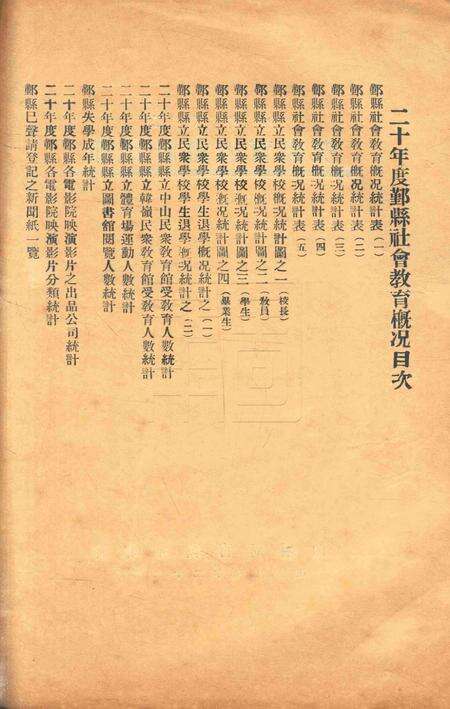 二十年度鄞縣社會教育概况目次
鄞縣社會教育概况統計表（一）
鄞縣社會教育概况統計表（二）
鄞縣社會教育概况統計表（三）
鄞縣社會教育概况統計表（四）
鄞縣社會教育概况統計表（五）
鄞縣縣立民衆學校概况統計圖之一（校長）
鄞縣縣立民衆學校概况統計圖之二（敎員）
鄞縣縣立民衆學校概况統計圖之三（學生）
鄞縣縣立民衆學校概况統計圖之四（畢業生）
鄞縣縣立民衆學校學生退學概况統計之（一）
鄞縣縣立民衆學校學生退學概况統計之（二）
二十年度鄞縣縣立中山民衆教育館受敎育人數統計
二十年度鄞縣縣立韓嶺民衆敎育館受敎育人數統計
二十年度鄞縣縣立體育塲運動人數統計
二十年度鄞縣縣立圖書館閱覽人數統計
鄞縣失學成年統計
二十年度鄞縣各電影院映演影片之出品公司統計
二十年度鄞縣各電影院映演影片分類統計
鄞縣已聲請登記之新聞紙一覽